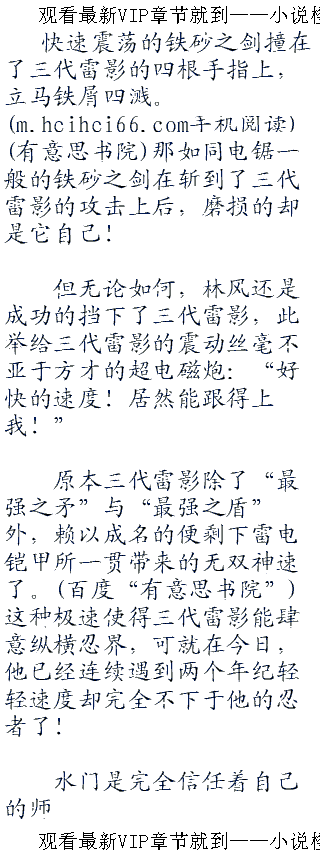 观看最新VIP章节就到——小说
快速震荡的铁砂之剑撞在
了三代雷影的四根手指上，
立马铁屑四溅。
(m.hcihci66.com手机阅读)
(有意思书院)那如同电锯一
般的铁砂之剑在斩到了三代
雷影的攻击上后，磨损的却
是它自己！
但无论如何，林风还是
成功的挡下了三代雷影，此
举给三代雷影的震动丝毫不
亚于方才的超电磁炮：“好
快的速度！居然能跟得上
我！”
原本三代雷影除了“最
强之矛”与“最强之盾”
外，赖以成名的便剩下雷电
铠甲所一贯带来的无双神速
了。(百度“有意思书院”)
这种极速使得三代雷影能肆
意纵横忍界，可就在今日，
他已经连续遇到两个年纪轻
轻速度却完全不下于他的忍
者了！
水门是完全信任着自己
的师
观看最新VIP章节就到——小说